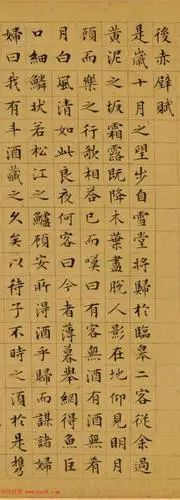 後赤壁賦
是歲十月之望步自雪堂將歸於臨皋二客從余過
黃泥之坂霜露既降木葉盡脫人影在地仰見明月
顧而樂之行歌相答已而嘆曰有客無酒有酒無肴
月白風清如此良夜何客曰今者薄暮舉網得魚巨
口細鱗狀若松江之鱸顧安所得酒乎歸而謀諸婦
婦曰我有斗酒藏之久矣以待子不時之須於是攜